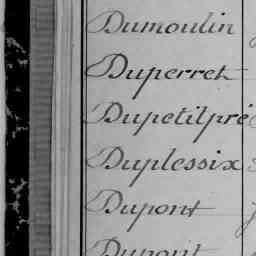 Dumoulin
Duperret
Dupetitpré
Duplessix
Dupont
Dupont